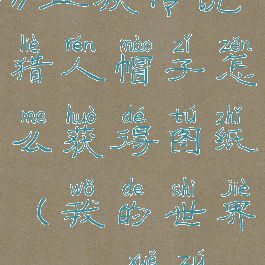 liè rén mào zǐ zěn
猎人帽子怎
me huò dé tú zhǐ
么获得图纸
wǒ de shì jiè
(我的世界
xuě zú